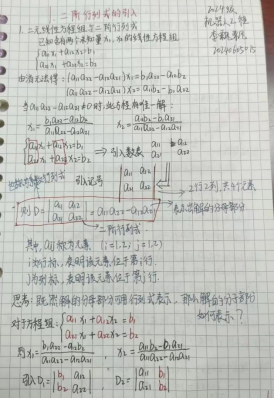 二阶行列式的引入
2024级
1. 二元线性方程组与二阶行列式
机器人2班
已知含有两个未知量x₁, x₂的线性方程组
{a₁₁x₁+a₁₂x₂=b₁
a₂₁x₁+a₂₂x₂=b₂
由消元法得: (a₁₁a₂₂-a₁₂a₂₁)x₁=b₁a₂₂-a₁₂b₂
(a₁₁a₂₂-a₁₂a₂₁)x₂=a₁₁b₂-b₁a₂₁
当a₁₁a₂₂-a₁₂a₂₁≠0时, 此方程有唯一解:
x₁=b₁a₂₂-a₁₂b₂/a₁₁a₂₂-a₁₂a₂₁ x₂=a₁₁b₂-b₁a₂₁/a₁₁a₂₂-a₁₂a₂₁
{a₁₁x₁+a₁₂x₂=b₁
a₂₁x₁+a₂₂x₂=b₂ ⇒ 引入数表 a₁₁ a₁₂
a₂₁ a₂₂
引入记号 |a₁₁ a₁₂
a₂₁ a₂₂|
2行2列, 共4个元素
则D=|a₁₁ a₁₂
a₂₁ a₂₂|=a₁₁a₂₂-a₁₂a₂₁
表示出解的分母部分
二阶行列式
其中, aᵢⱼ称为元素 (i=1,2; j=1,2)
i为行标, 表明该元素位于第i行.
j为列标, 表明该元素位于第j列.
思考: 既然解的分母部分可用行列式表示, 那么解的分子部分
如何表示?
对于方程组: {a₁₁x₁+a₁₂x₂=b₁
a₂₁x₁+a₂₂x₂=b₂
则x₁=b₁a₂₂-a₁₂b₂/a₁₁a₂₂-a₁₂a₂₁, x₂=a₁₁b₂-b₁a₂₁/a₁₁a₂₂-a₁₂a₂₁
引入D₁=|b₁ a₁₂
b₂ a₂₂| D₂=|a₁₁ b₁
a₂₁ b₂|